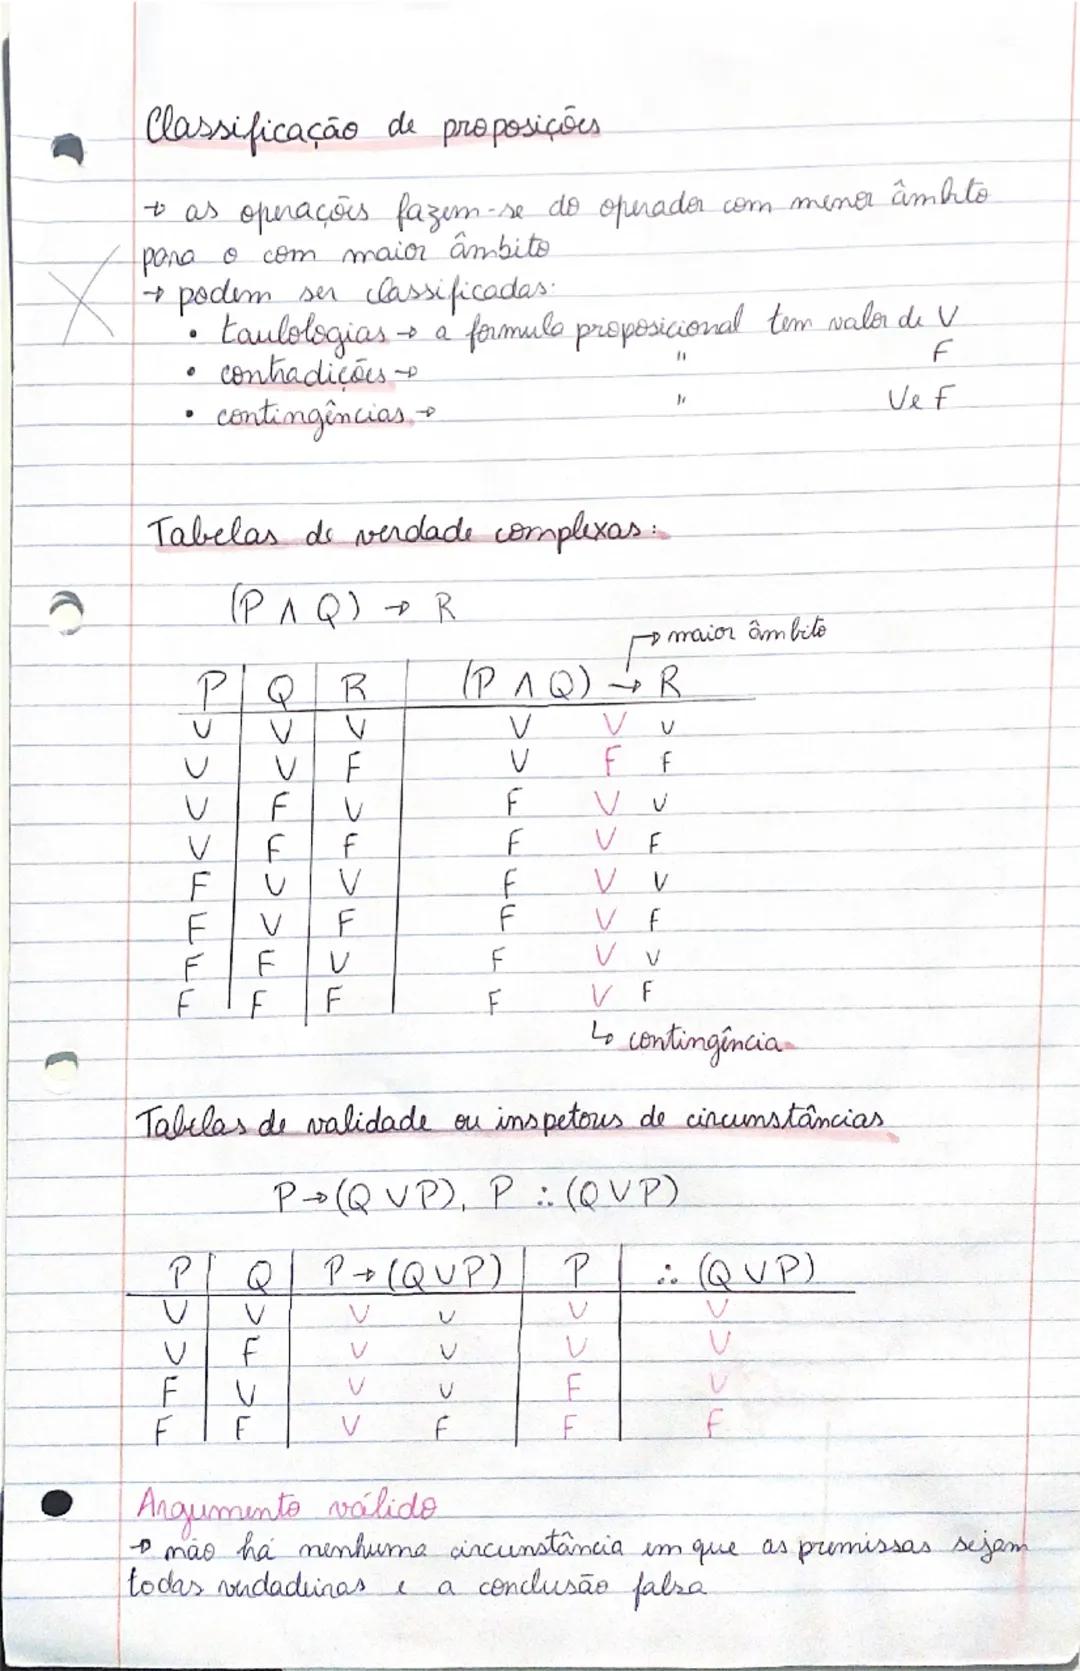 Classificação de proposições
→ as operações fazem-se do operador com menor âmbito
para o com maior âmbito
→ podem ser classificadas:
• tautologias → a formula proposicional tem valor de V
• contradições → " F
• contingências → " V e F
Tabelas de verdade complexas:
(P ∧ Q) → R
→ maior âmbito
P Q R (P ∧ Q) → R
V V V V V V
V V F V F F
V F V F V V
V F F F V F
F V V F V V
F V F F V F
F F V F V V
F F F F V F
↳ contingência
Tabelas de validade ou inspetores de circunstâncias
P → (Q ∨ P), P ∴ (Q ∨ P)
P Q P → (Q ∨ P) P ∴ (Q ∨ P)
V V V V V V
V F V V V V
F V V V F V
F F V F F F
Argumento válido
→ não há nenhuma circunstância em que as premissas sejam
todas verdadeiras e a conclusão falsa